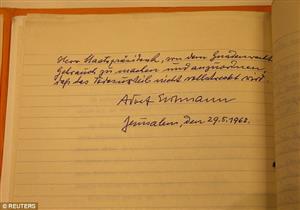 Herr Staatspräsident, von dem Gnadenrecht
Gebrauch zu machen und anzuordnen,
daß das Todesurteil nicht vollstreckt wird
Adolf Eichmann
Jerusalem, den 29.5.1962.
© REUTERS